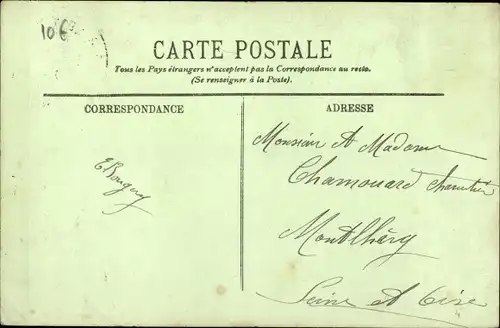 106
CARTE POSTALE
Tous les Pays étrangers n'acceptent pas la Correspondance au recto.
(Se renseigner à la Poste).
CORRESPONDANCE
ADRESSE
Monsieur et Madame
Chamouard
Montlhéry
Seine et Oise